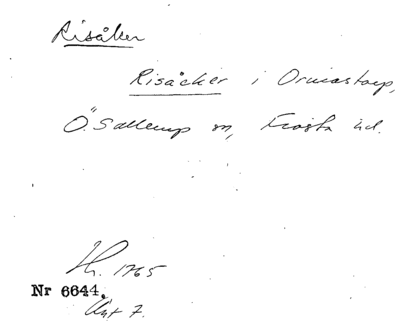 Risåker
Risåcker i Ormastorp,
Ö. Sallerup sn, Frosta hd.
Hr. 1765
Nr 6644.
Akt 7.